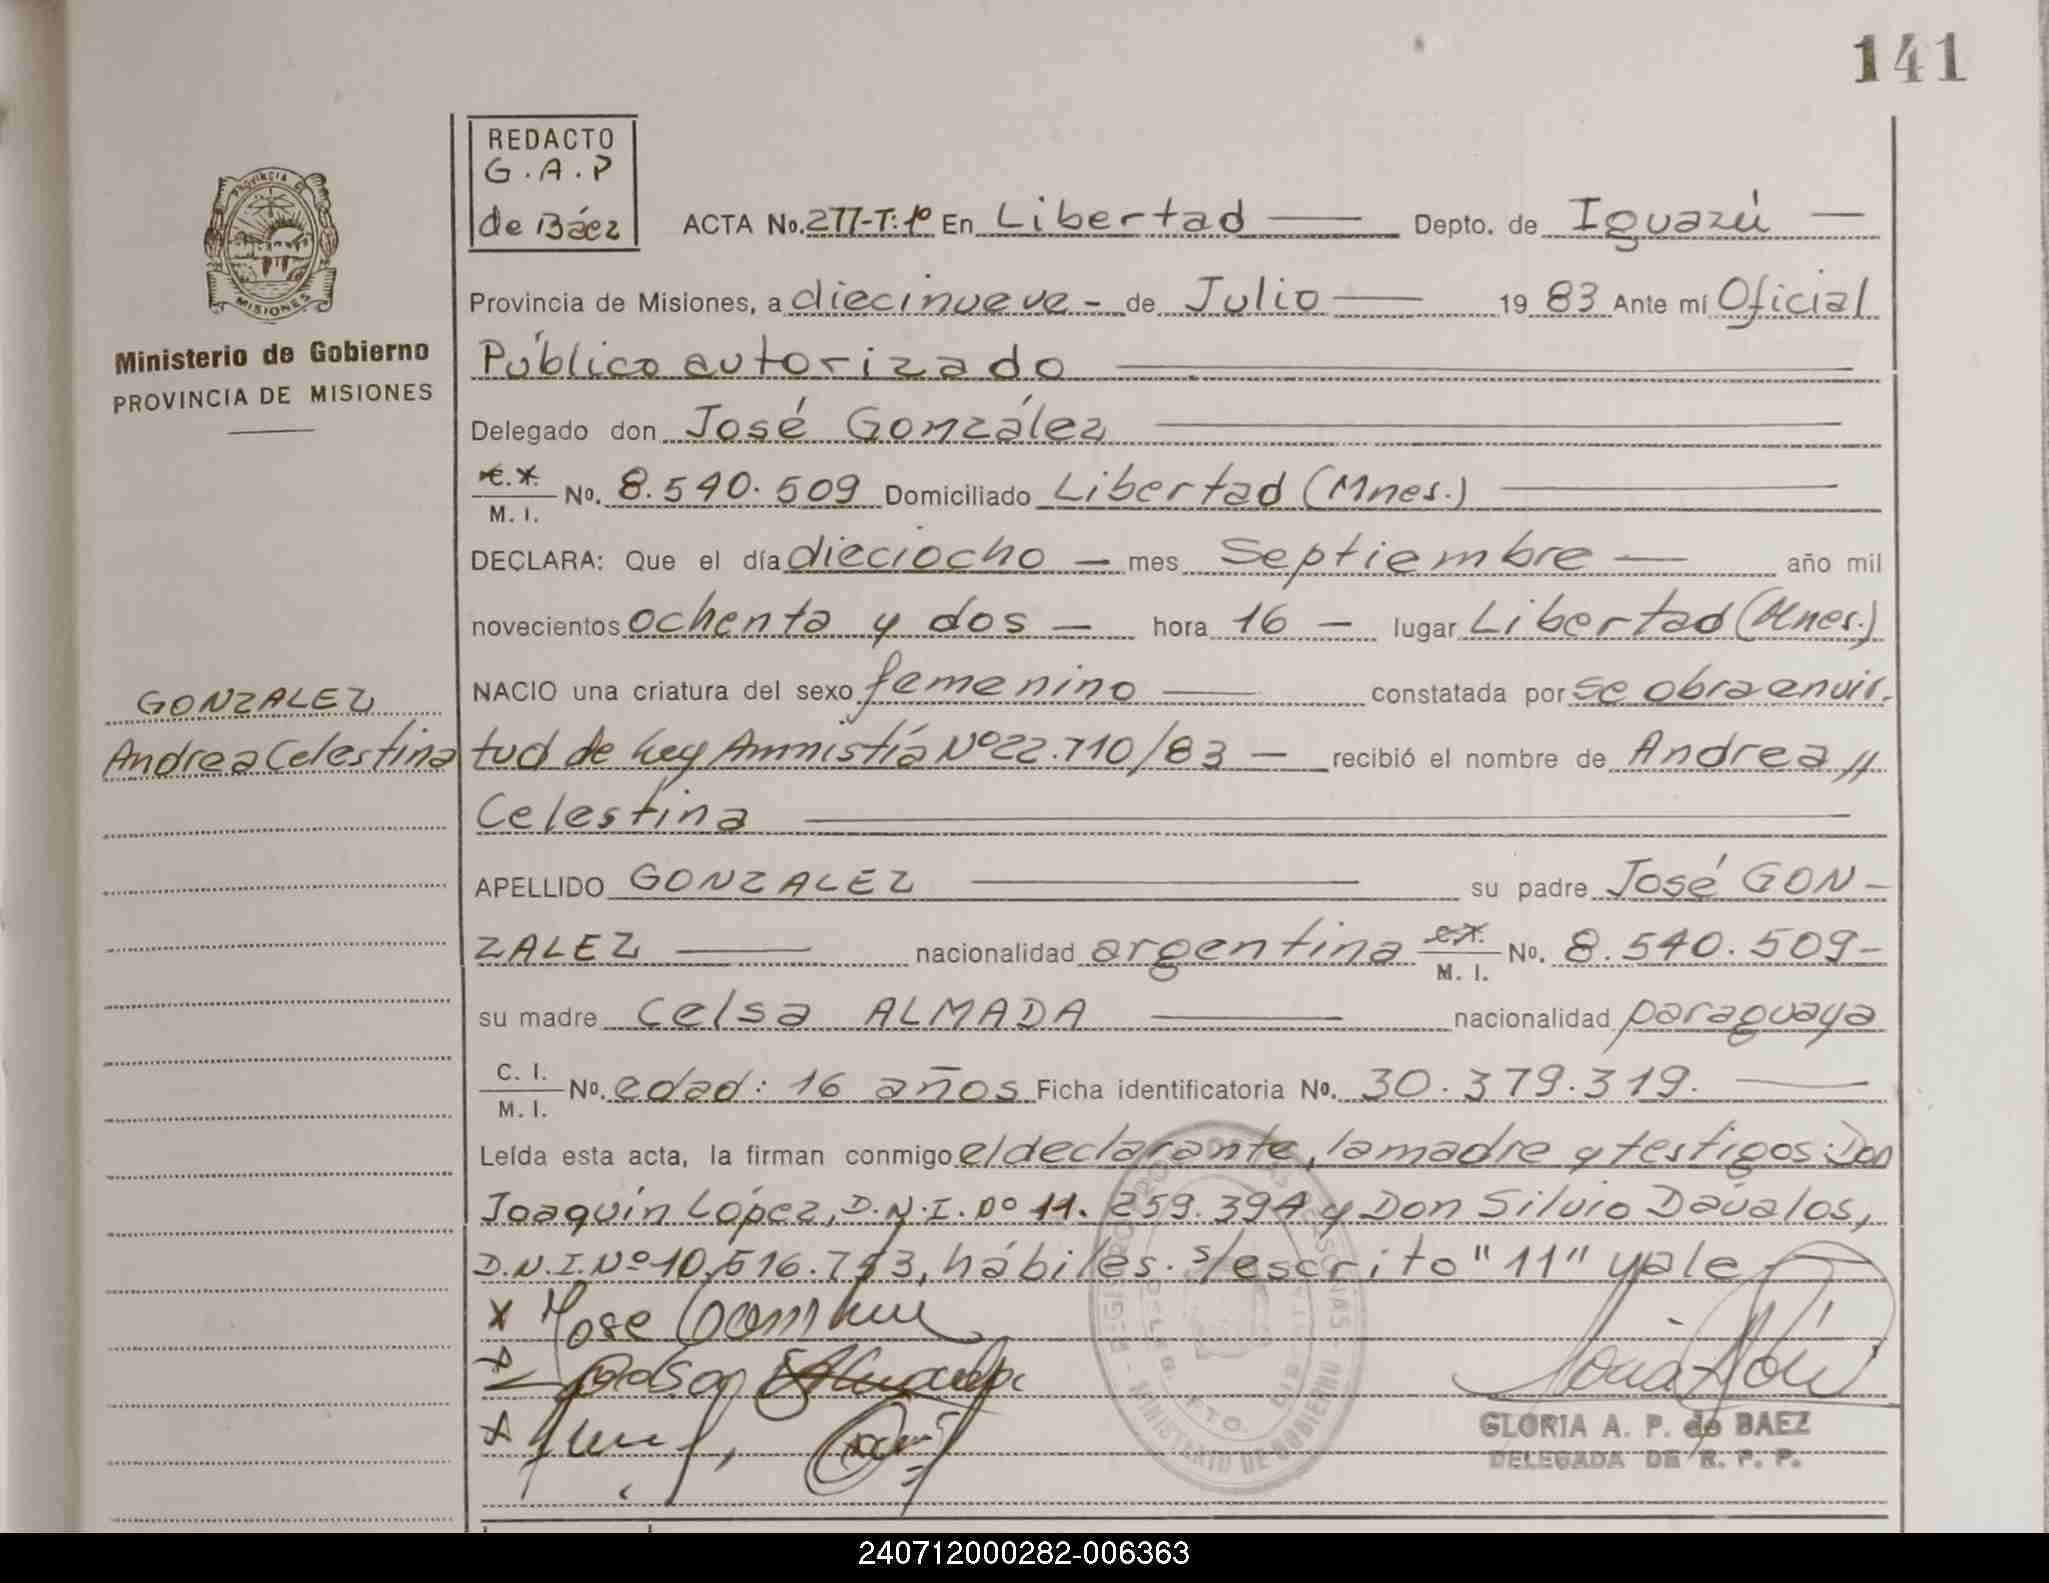 141
REDACTO
G.A.P
de Báez
ACTA No. 277-T:1º En Libertad Depto. de Iguazú
Provincia de Misiones, a diecinueve - de Julio 1983 Ante mí Oficial
Público autorizado
Delegado don José González
No. 8.540.509 Domiciliado Libertad (Mnes.)
M. I.
DECLARA: Que el día dieciocho — mes Septiembre — año mil
novecientos ochenta y dos — hora 16 — lugar Libertad (Mnes.)
NACIO una criatura del sexo femenino constatada por se obra en vir-
tud de Ley Amnistía Nº 22.710/83 — recibió el nombre de Andrea //
Celestina
APELLIDO GONZALEZ su padre José GON-
ZALEZ nacionalidad argentina M. I. No. 8.540.509-
su madre Celsa ALMADA nacionalidad paraguaya
C. I.
M. I. No. edad: 16 años Ficha identificatoria No. 30.379.319.
Leída esta acta, la firman conmigo el declarante, la madre y testigos: Don
Joaquín López, D.N.I. nº 11.259.394 y Don Silvio Dávalos,
D.N.I. Nº 10.516.753, hábiles. s/escrito "11" vale
Jose
GLORIA A. P. de BAEZ
DELEGADA DE R. P. P.
PROVINCIA DE MISIONES
Ministerio de Gobierno
PROVINCIA DE MISIONES
GONZALEZ
Andrea Celestina
MINISTERIO DE GOBIERNO
240712000282-006363